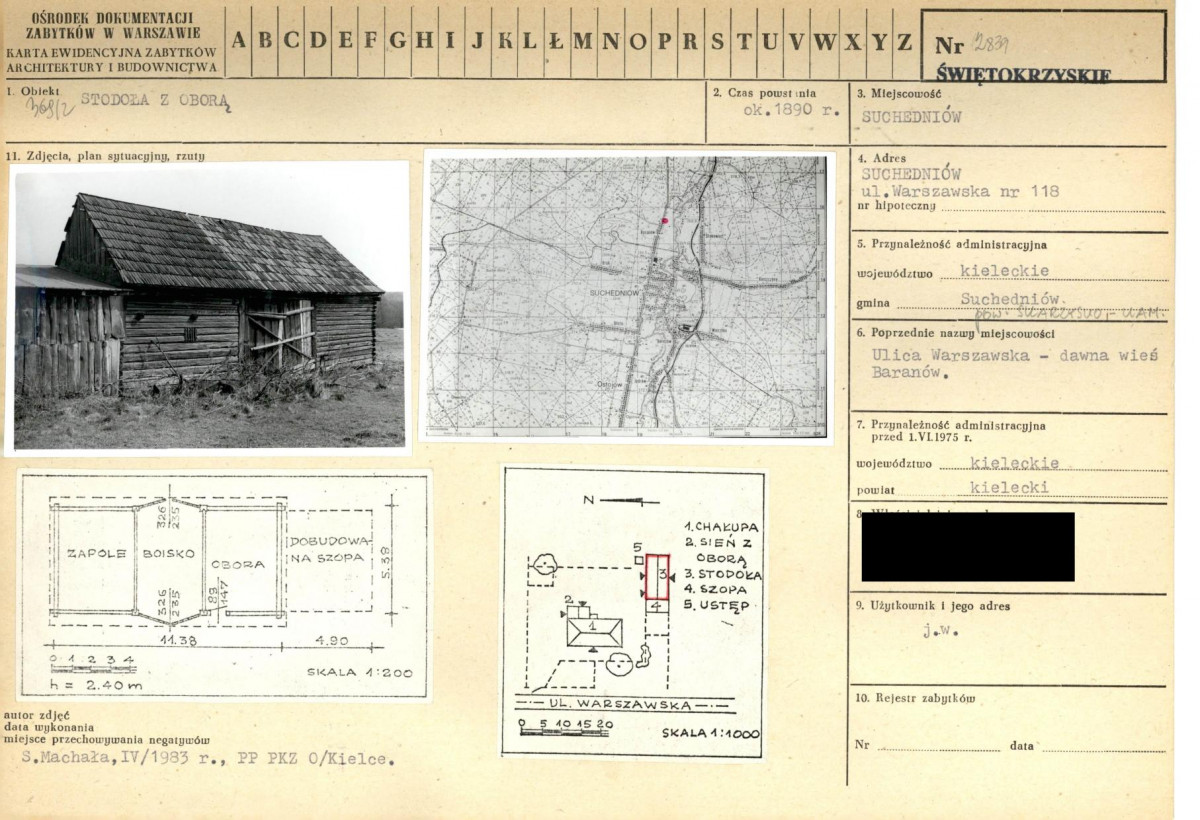 OŚRODEK DOKUMENTACJI
ZABYTKÓW W WARSZAWIE
KARTA EWIDENCYJNA ZABYTKÓW
ARCHITEKTURY I BUDOWNICTWA
A B C D E F G H I J K L Ł M N O P R S T U V W X Y Z
Nr 2839
ŚWIĘTOKRZYSKIE
1. Obiekt
STODOŁA Z OBORĄ
368/2
2. Czas powstania
ok.1890 r.
3. Miejscowość
SUCHEDNIÓW
11. Zdjęcia, plan sytuacyjny, rzuty
4. Adres
SUCHEDNIÓW
ul.Warszawska nr 118
nr hipoteczny
5. Przynależność administracyjna
województwo kieleckie
gmina Suchedniów.
pow. SKARŻYSKO-KAM.
6. Poprzednie nazwy miejscowości
Ulica Warszawska - dawna wieś
Baranów.
7. Przynależność administracyjna
przed 1.VI.1975 r.
województwo kieleckie
powiat kielecki
8.
9. Użytkownik i jego adres
j.w.
10. Rejestr zabytków
Nr data
SUCHEDNIÓW
Ostojów
ZAPOLE
BOISKO
OBORA
DOBUDOWA-
NA SZOPA
326
235
326
235
89
147
5.39
11.38
4.90
0 1 2 3 4
SKALA 1:200
h = 2.40 m
N
1. CHAŁUPA
2. SIEŃ Z
OBORĄ
3. STODOŁA
4. SZOPA
5. USTĘP
5
3
4
2
1
UL. WARSZAWSKA
0 5 10 15 20
SKALA 1:1000
autor zdjęć
data wykonania
miejsce przechowywania negatywów
S.Machała,IV/1983 r., PP PKZ O/Kielce.